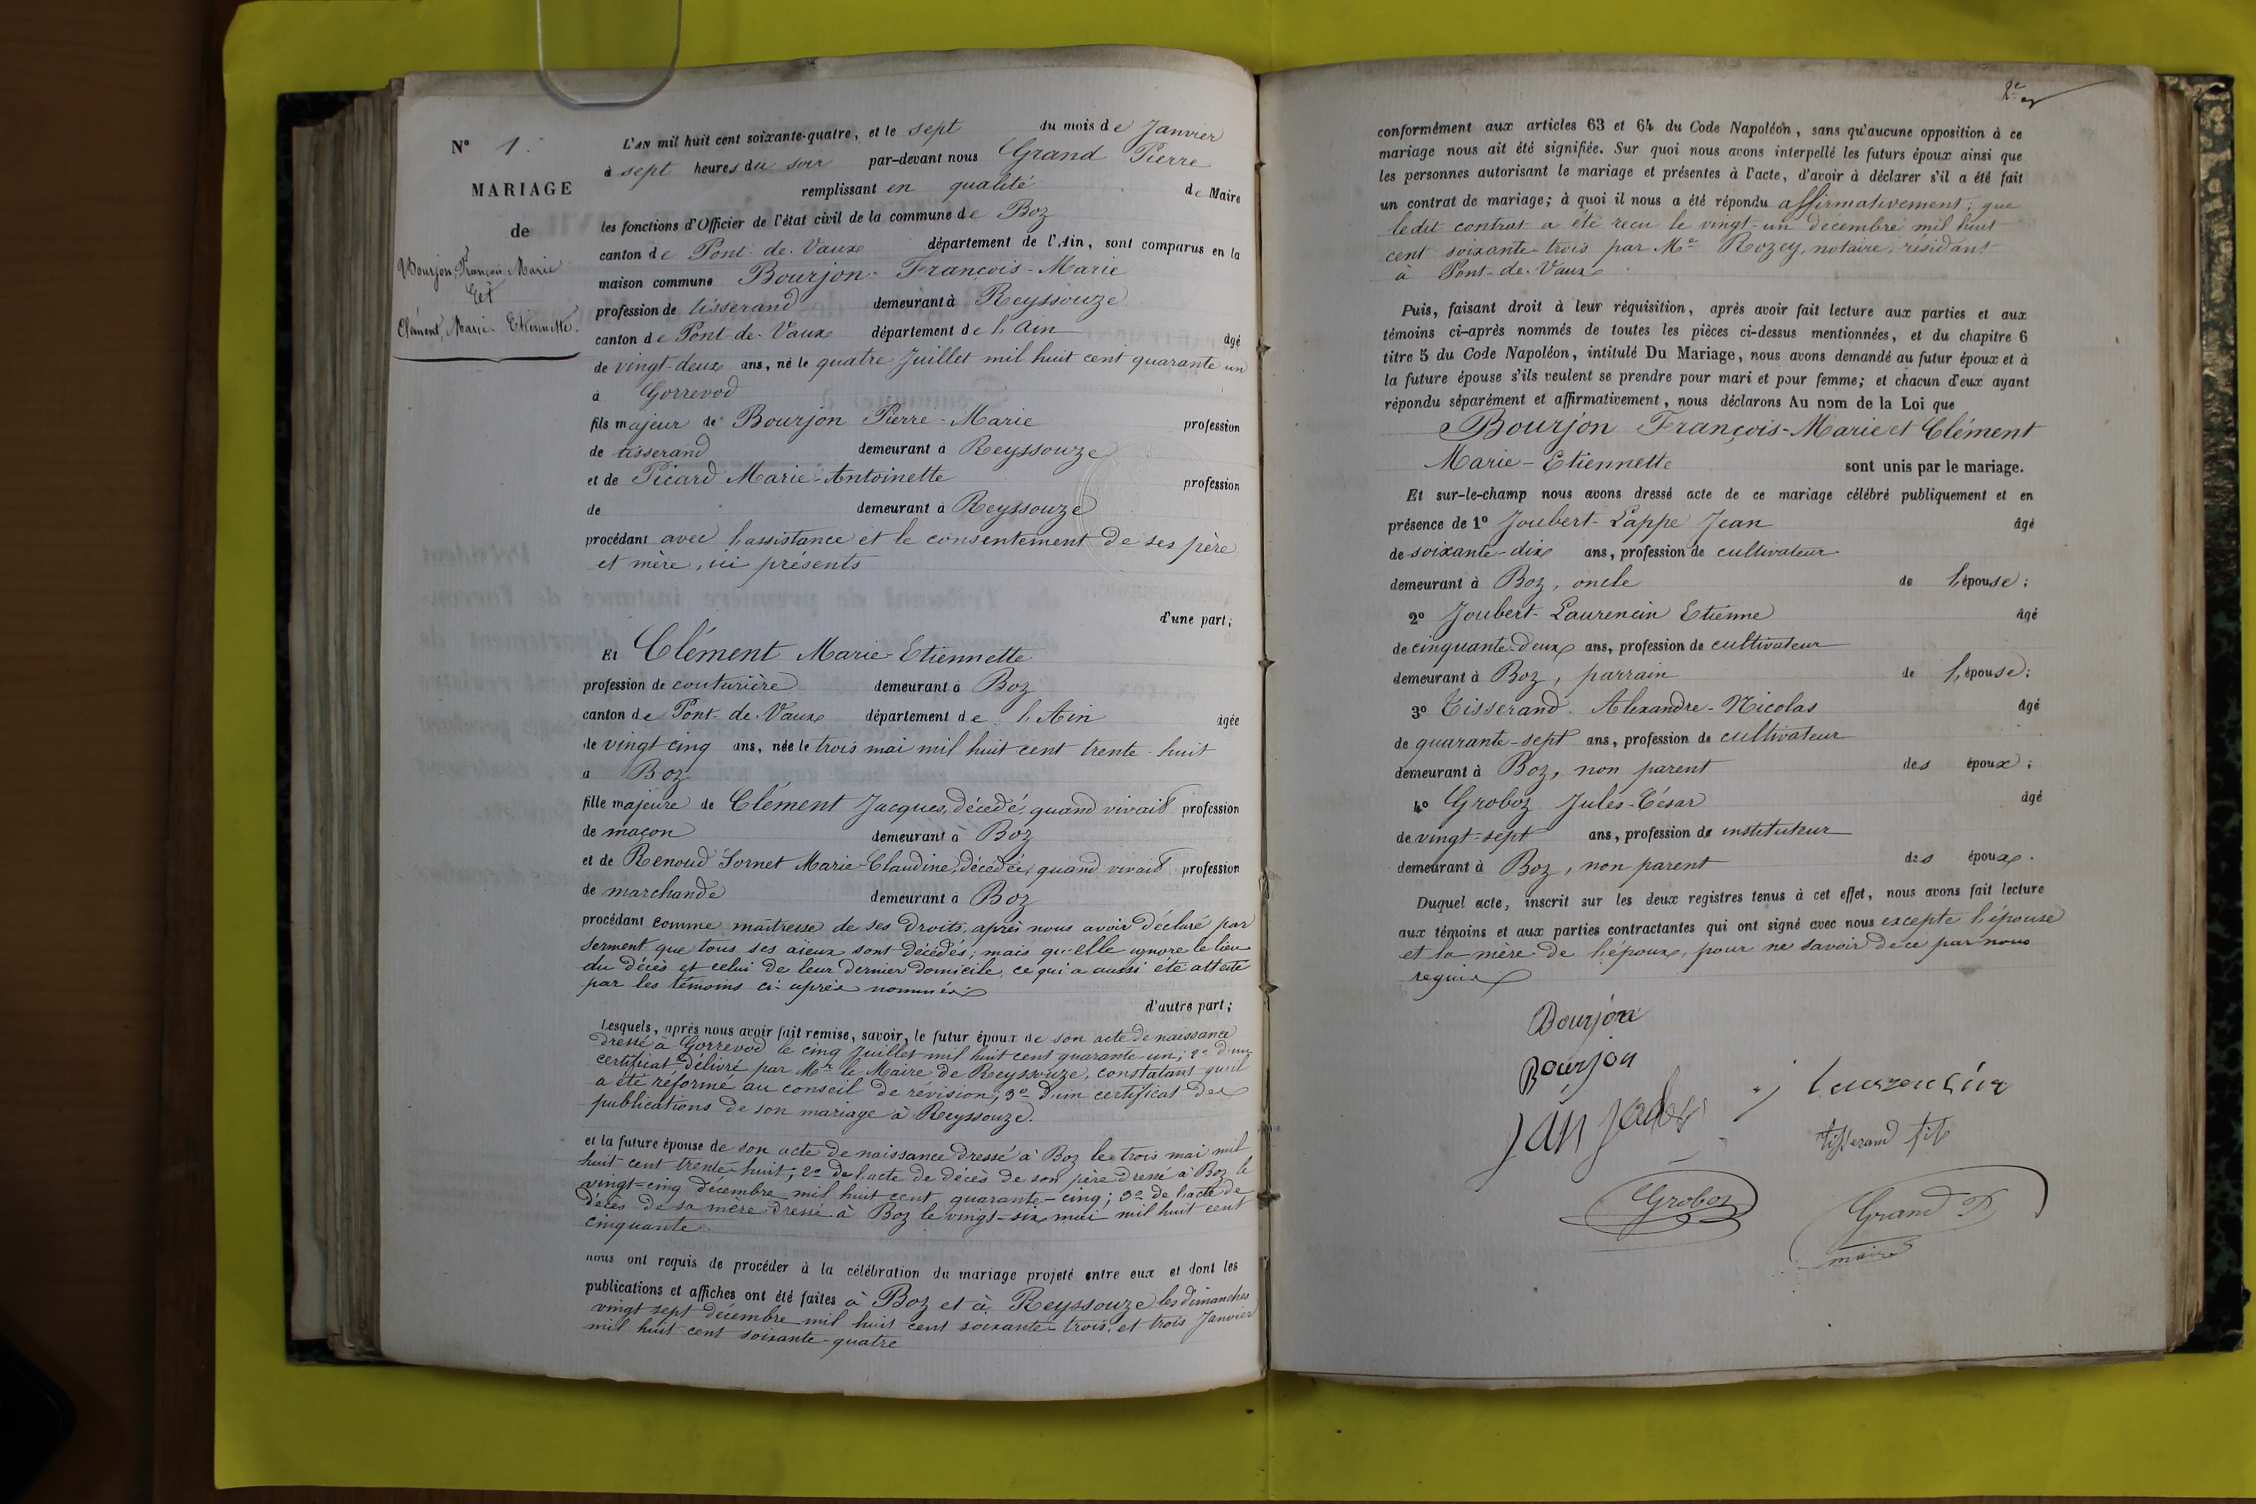 N° 1.
MARIAGE
de
Bourjon, François Marie
Et
Clément, Marie-Etiennette.
L'AN mil huit cent soixante-quatre, et le sept du mois de Janvier
à sept heures du soir par-devant nous Grand Pierre
remplissant en qualité de Maire
les fonctions d'Officier de l'état civil de la commune de Boz
canton de Pont-de-Vaux département de l'Ain, sont comparus en la
maison commune Bourjon François-Marie
profession de tisserand demeurant à Reyssouze
canton de Pont-de-Vaux département de l'Ain âgé
de vingt-deux ans, né le quatre Juillet mil huit cent quarante un
à Gorrevod
fils majeur de Bourjon Pierre-Marie profession
de tisserand demeurant à Reyssouze
et de Picard Marie-Antoinette profession
de demeurant à Reyssouze
procédant avec l'assistance et le consentement de ses père
et mère, ici présents
d'une part;
Et Clément Marie-Etiennette
profession de couturière demeurant à Boz
canton de Pont-de-Vaux département de l'Ain âgée
de vingt cinq ans, née le trois mai mil huit cent trente-huit
à Boz
fille majeure de Clément Jacques, décédé, quand vivait profession
de maçon demeurant à Boz
et de Renoud Sornet Marie-Claudine, décédée, quand vivait profession
de marchande demeurant à Boz
procédant comme maîtresse de ses droits, après nous avoir déclaré par
serment que tous ses aïeux sont décédés; mais qu'elle ignore le lieu
du décès et celui de leur dernier domicile, ce qui a aussi été attesté
par les témoins ci-après nommés
d'autre part;
Lesquels, après nous avoir fait remise, savoir, le futur époux de son acte de naissance
dressé à Gorrevod le cinq Juillet mil huit cent quarante-un; 2° d'un
certificat délivré par Mr le Maire de Reyssouze, constatant qu'il
a été réformé au conseil de révision; 3° d'un certificat des
publications de son mariage à Reyssouze.
et la future épouse de son acte de naissance dressé à Boz le trois mai mil
huit cent trente-huit; 2° de l'acte de décès de son père dressé à Boz le
vingt-cinq décembre mil huit cent quarante-cinq; 3° de l'acte de
décès de sa mère dressé à Boz le vingt-six mai mil huit cent
cinquante
nous ont requis de procéder à la célébration du mariage projeté entre eux et dont les
publications et affiches ont été faites à Boz et à Reyssouze les dimanches
vingt sept décembre mil huit cent soixante-trois, et trois Janvier
mil huit cent soixante-quatre
conformément aux articles 63 et 64 du Code Napoléon, sans qu'aucune opposition à ce
mariage nous ait été signifiée. Sur quoi nous avons interpellé les futurs époux ainsi que
les personnes autorisant le mariage et présentes à l'acte, d'avoir à déclarer s'il a été fait
un contrat de mariage; à quoi il nous a été répondu affirmativement; que
ledit contrat a été reçu le vingt-un décembre mil huit
cent soixante-trois par Me Rozey, notaire, résidant
à Pont-de-Vaux
Puis, faisant droit à leur réquisition, après avoir fait lecture aux parties et aux
témoins ci-après nommés de toutes les pièces ci-dessus mentionnées, et du chapitre 6
titre 5 du Code Napoléon, intitulé Du Mariage, nous avons demandé au futur époux et à
la future épouse s'ils veulent se prendre pour mari et pour femme; et chacun d'eux ayant
répondu séparément et affirmativement, nous déclarons Au nom de la Loi que
Bourjon François-Marie et Clément
Marie-Etiennette sont unis par le mariage.
Et sur-le-champ nous avons dressé acte de ce mariage célébré publiquement et en
présence de 1° Joubert-Lappe Jean âgé
de soixante-dix ans, profession de cultivateur
demeurant à Boz, oncle de l'épouse;
2° Joubert-Laurencin Etienne âgé
de cinquante-deux ans, profession de cultivateur
demeurant à Boz, parrain de l'épouse;
3° Tisserand Alexandre-Nicolas âgé
de quarante-sept ans, profession de cultivateur
demeurant à Boz, non parent des époux;
4° Groboz Jules-César âgé
de vingt-sept ans, profession de instituteur
demeurant à Boz, non parent des époux.
Duquel acte, inscrit sur les deux registres tenus à cet effet, nous avons fait lecture
aux témoins et aux parties contractantes qui ont signé avec nous excepté l'épouse
et la mère de l'époux, pour ne savoir de ce par nous
requis
Bourjon
Bourjon
Tisserand fils
Groboz
Grand P
maire